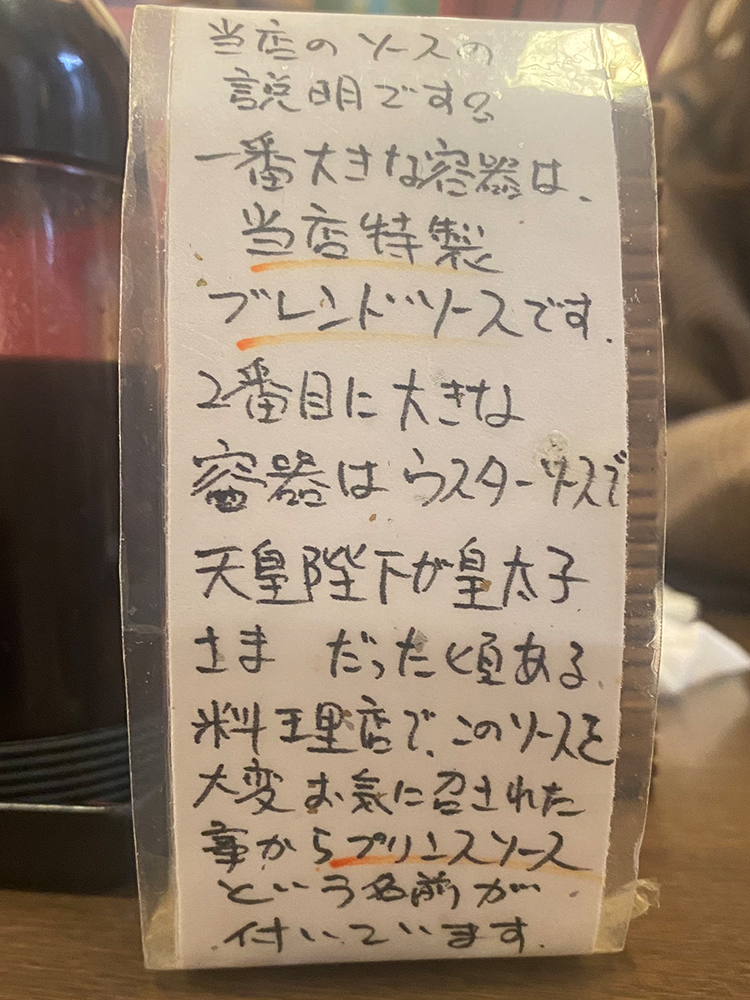 当店のソースの
説明です。
一番大きな容器は、
当店特製
ブレンドソースです.
2番目に大きな
容器はウスターソースで
天皇陛下が皇太子
さま だった頃ある.
料理店で、このソースを
大変お気に召された
事からプリンスソース
という名前が
付いています.